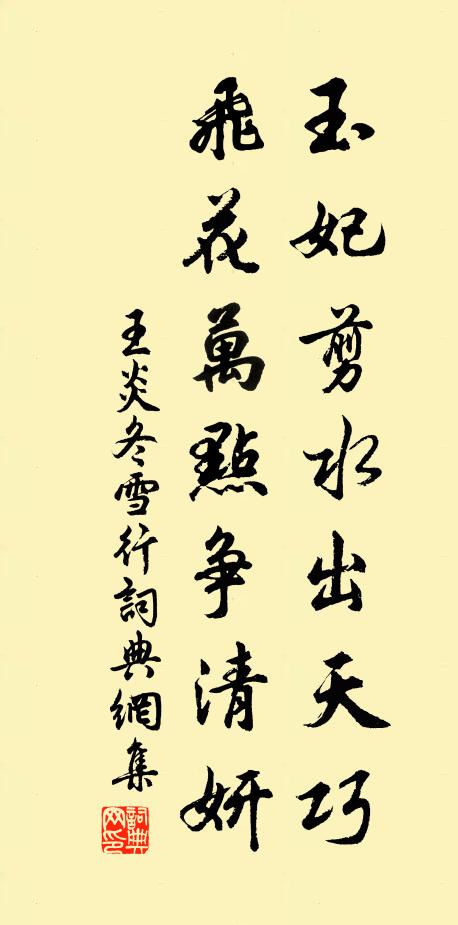 玉妃剪水出天巧
飛花萬點争清妍
王炎冬雪行詞典網集
詞典網印